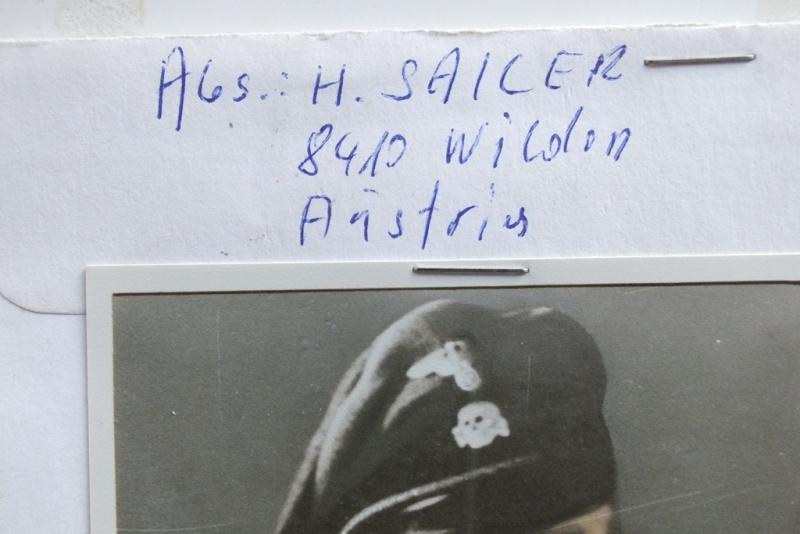 Abs.: H. SAILER
8410 Wildon
Austria